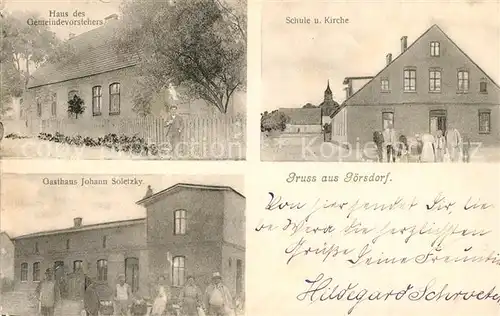 Haus des
Gemeindevorstehers
Schule u. Kirche
Gasthaus Johann Soletzky
Gruss aus Görsdorf.
Von hier sendet Dir, lie-
be Wera die herzlichsten
Grüße Deine Freundin
Hildegard Schroeter